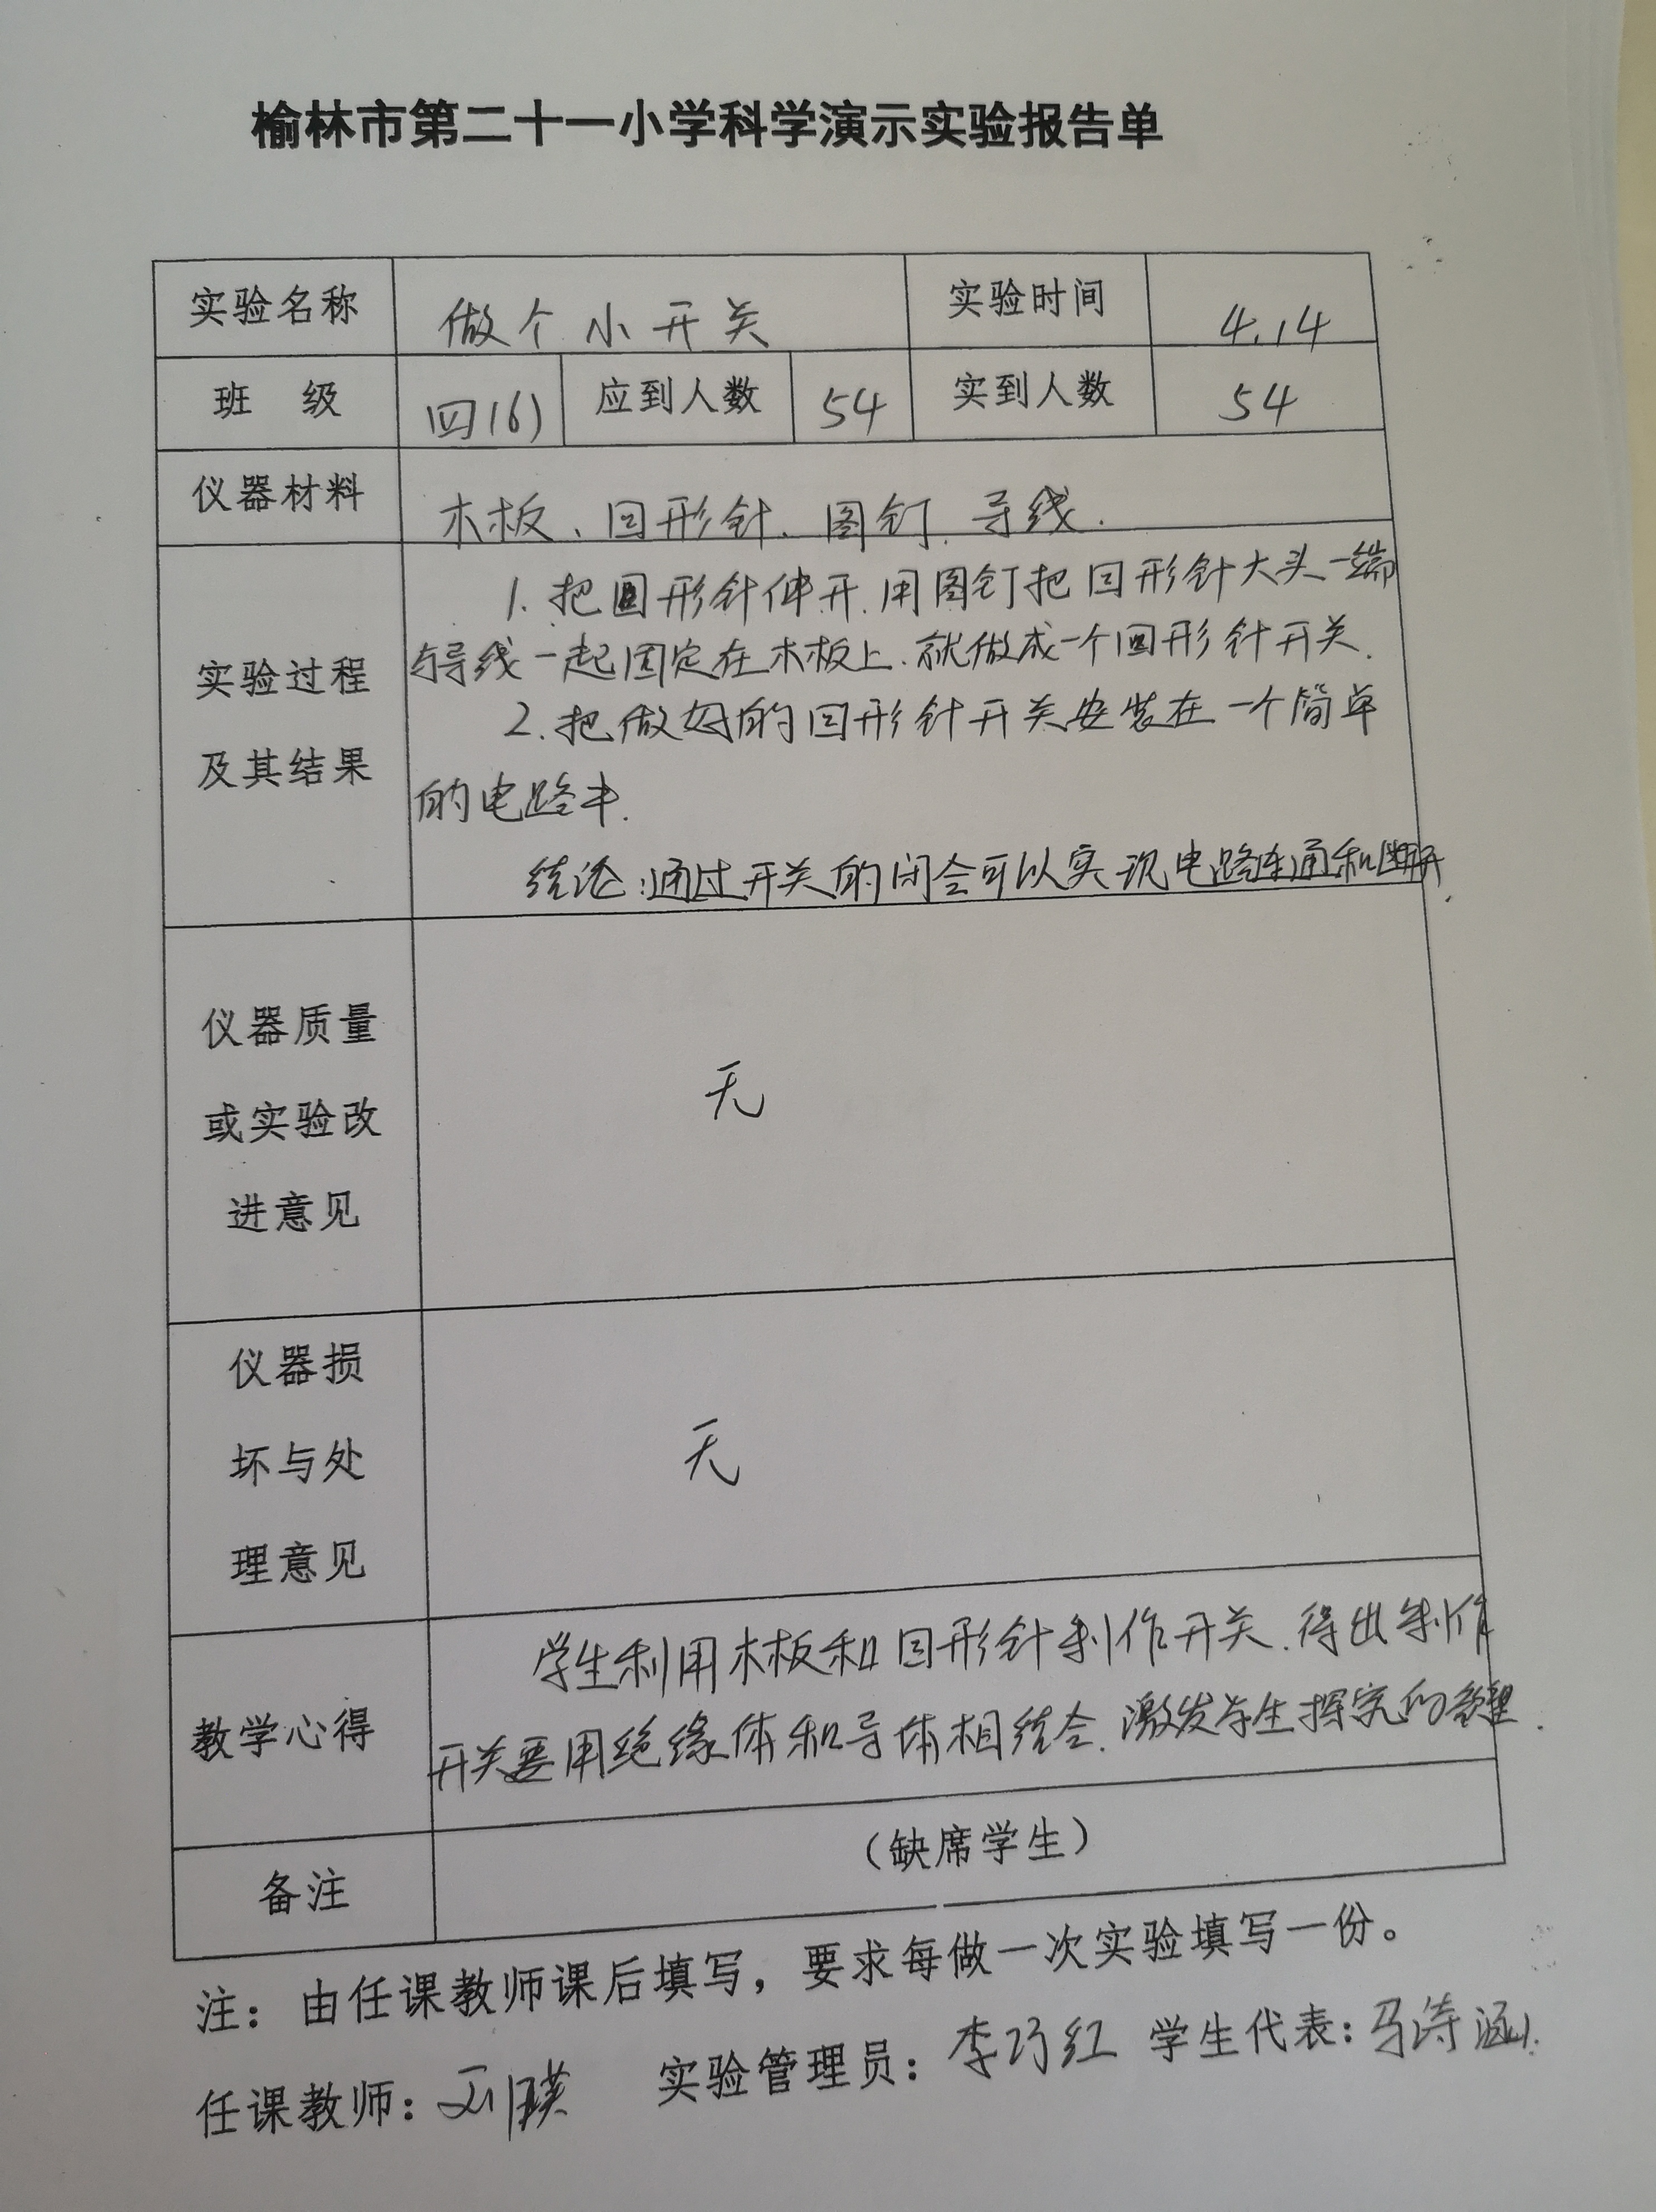 榆林市第二十一小学科学演示实验报告单
实验名称 做个小开关 实验时间 4.14
班 级 四(6) 应到人数 54 实到人数 54
仪器材料 木板、回形针、图钉、导线.
1.把回形针伸开.用图钉把回形针大头一端
与导线一起固定在木板上.就做成一个回形针开关.
实验过程
2.把做好的回形针开关安装在一个简单
及其结果
的电路中.
结论:通过开关的闭合可以实现电路连通和断开.
仪器质量
或实验改 无
进意见
仪器损
坏与处 无
理意见
学生利用木板和回形针制作开关.得出制作
教学心得
开关要用绝缘体和导体相结合.激发学生探究的欲望.
(缺席学生)
备注
注：由任课教师课后填写，要求每做一次实验填写一份。
任课教师：刘瑛 实验管理员：李巧红 学生代表：马诗涵